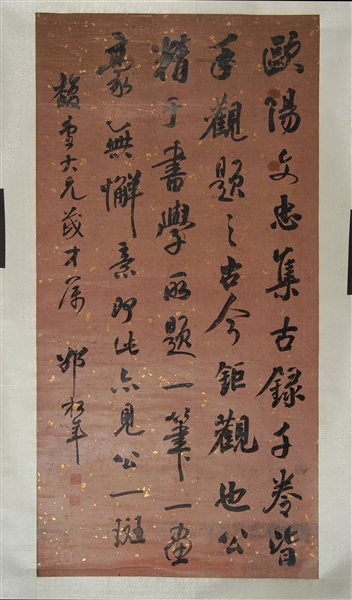 歐陽文忠集古録千卷皆
手觀題之古今鉅觀也公
精于書學所題一筆一畫
亳無懈意即此亦見公一斑
馥雪大兄茂才屬 邵松年